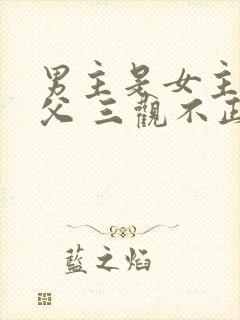 男主是女主
父 三觀不正
藍之焰